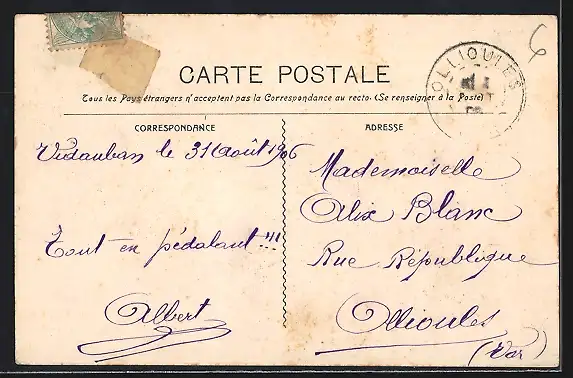 6
CARTE POSTALE
Tous les Pays étrangers n'acceptent pas la Correspondance au recto. (Se renseigner à la Poste)
OLLIOULES
CORRESPONDANCE
ADRESSE
Vidauban le 31 Août 1906
Tout en pédalant !!!
Albert
Mademoiselle
Alix Blanc
Rue République
Ollioules
(Var)